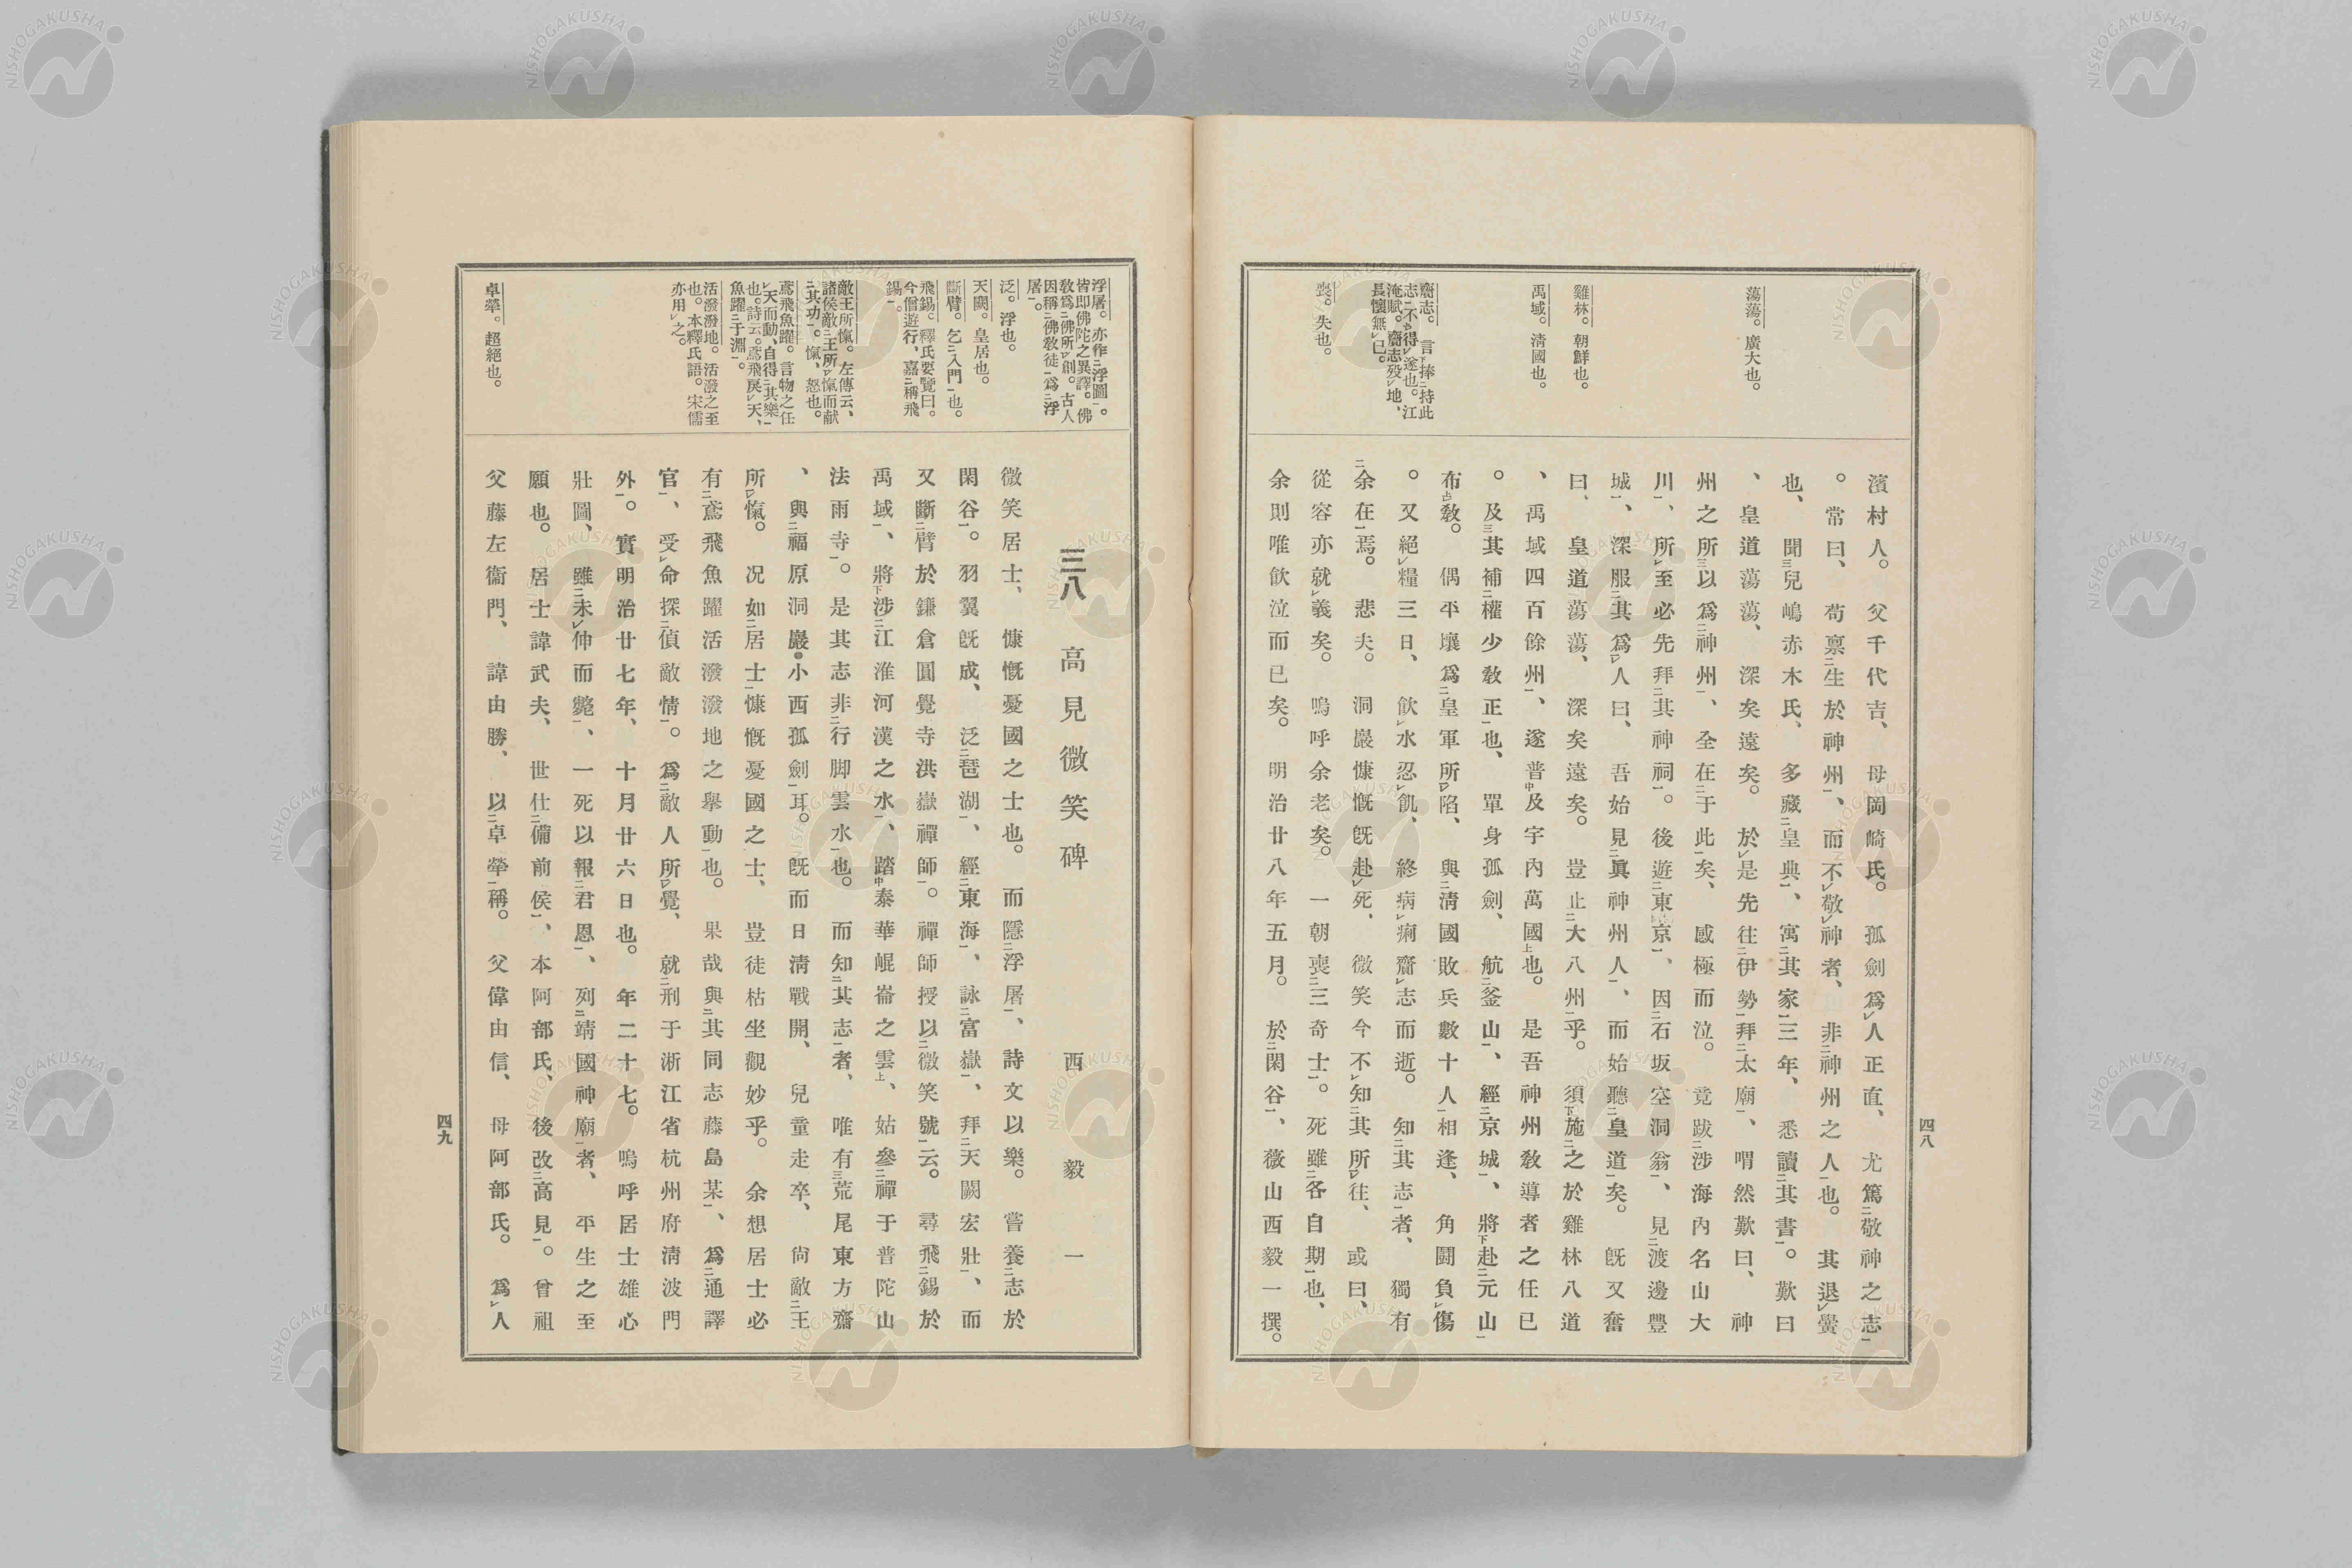 蕩蕩。廣大也。
雞林。朝鮮也。
禹域。清國也。
齎志。言捧持此
志不得遂也。江
淹賦。齎志歿地、
長懷無已。
喪。失也。
濱村人。父千代吉、母岡崎氏。孤劍爲人正直、尤篤敬神之志
。常曰、苟禀生於神州、而不敬神者、非神州之人也。其退黌
也、聞兒嶋赤木氏、多藏皇典、寓其家三年、悉讀其書。歎曰
、皇道蕩蕩、深矣遠矣。於是先往伊勢拜太廟、喟然歎曰、神
州之所以爲神州、全在于此矣、感極而泣。竟跋涉海內名山大
川、所至必先拜其神祠。後遊東京、因石坂空洞翁、見渡邊豐
城、深服其爲人曰、吾始見眞神州人、而始聽皇道矣。旣又奮
曰、皇道蕩蕩、深矣遠矣。豈止大八州乎。須施之於雞林八道
、禹域四百餘州、遂普及宇內萬國也。是吾神州敎導者之任已
。及其補權少敎正也、單身孤劍、航釜山、經京城、將赴元山
布敎。偶平壤爲皇軍所陷、與淸國敗兵數十人相逢、角鬪負傷
。又絕糧三日、飮水忍飢、終病痢齎志而逝。知其志者、獨有
余在焉。悲夫。洞巖慷慨旣赴死、微笑今不知其所往、或曰、
從容亦就義矣。嗚呼余老矣。一朝喪三奇士。死雖各自期也、
余則唯飮泣而已矣。明治廿八年五月。於閑谷、薇山西毅一撰。
四八
浮屠。亦作浮圖。
皆卽佛陀之異譯。佛
敎爲佛所創。古人
因稱佛敎徒爲浮
屠。
泛。浮也。
天闕。皇居也。
斷臂。乞入門也。
飛錫。釋氏要覽曰。
今僧遊行、嘉稱飛
錫。
敵王所愾。左傳云、
諸侯敵王所愾而献
其功。愾、怒也。
鳶飛魚躍。言物之任
天而動、自得其樂
也。詩云。鳶飛戾天、
魚躍于淵。
活潑潑地。活潑之至
也。本釋氏語。宋儒
亦用之。
卓犖。超絕也。
三八 高見微笑碑 西毅一
微笑居士、慷慨憂國之士也。而隱浮屠、詩文以樂。嘗養志於
閑谷。羽翼旣成、泛琶湖、經東海、詠富嶽、拜天闕宏壯、而
又斷臂於鎌倉圓覺寺洪嶽禪師。禪師授以微笑號云。尋飛錫於
禹域、將涉江淮河漢之水、踏泰華崐崙之雲、姑參禪于普陀山
法雨寺。是其志非行脚雲水也。而知其志者、唯有荒尾東方齋
、與福原洞巖・小西孤劍耳。旣而日淸戰開、兒童走卒、尙敵王
所愾。况如居士慷慨憂國之士、豈徒枯坐觀妙乎。余想居士必
有鳶飛魚躍活潑潑地之擧動也。果哉與其同志藤島某、爲通譯
官、受命探偵敵情。爲敵人所覺、就刑于淅江省杭州府淸波門
外。實明治廿七年、十月廿六日也。年二十七。嗚呼居士雄心
壯圖、雖未伸而斃、一死以報君恩、列靖國神廟者、平生之至
願也。居士諱武夫、世仕備前侯、本阿部氏、後改高見。曾祖
父藤左衞門、諱由勝、以卓犖稱。父偉由信、母阿部氏。爲人
四九